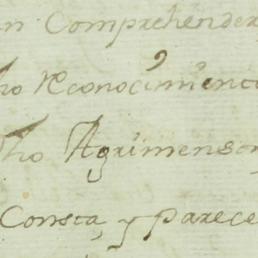 n Comprehender
ho reconocimiento
ho Agrimensor
Consta, y parece